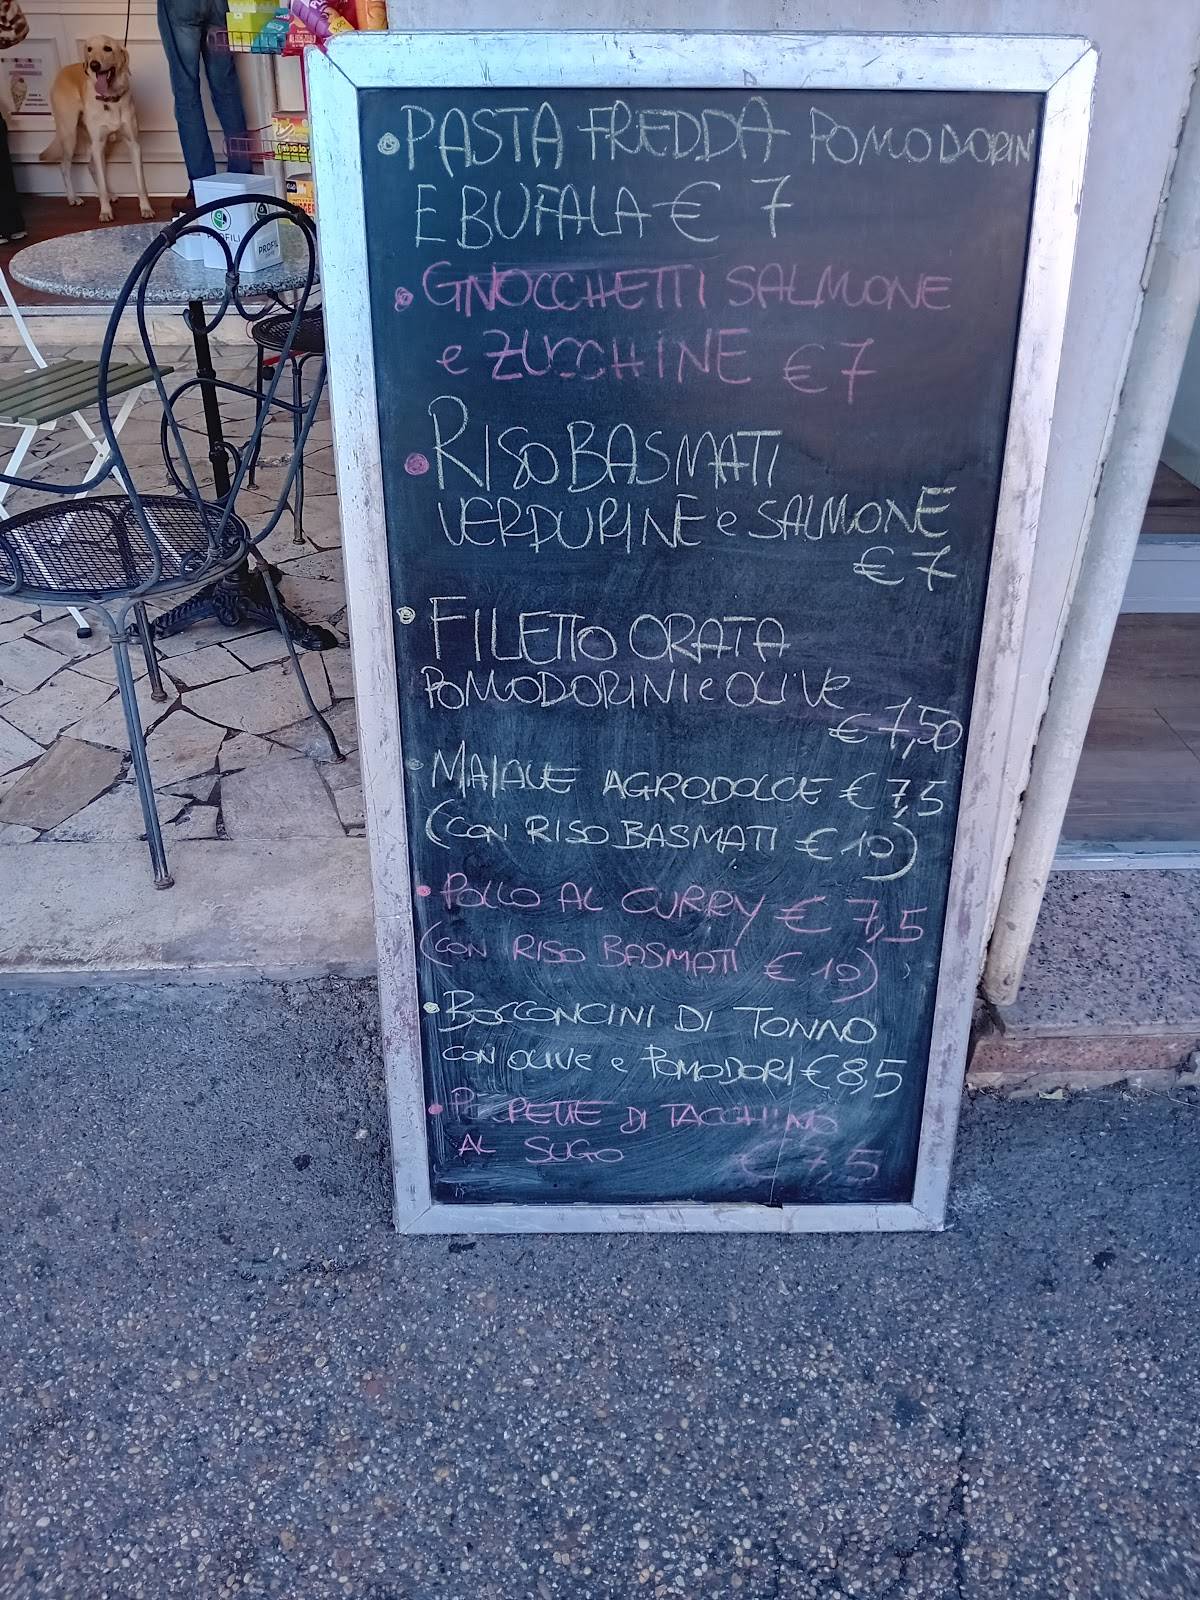 PROFILI
PROFIL
• PASTA FREDDA POMODORIN
E BUFALA € 7
• GNOCCHETTI SALMONE
e ZUCCHINE € 7
• RISO BASMATI
VERDURINE e SALMONE
€ 7
• FILETTO ORATA
POMODORINI e OLIVE
€ 7,50
• MAIALE AGRODOLCE € 7,5
(CON RISO BASMATI € 10)
• POLLO AL CURRY € 7,5
(CON RISO BASMATI € 10)
• BOCCONCINI DI TONNO
CON OLIVE e POMODORI € 8,5
• DI TACCHINO
AL SUGO € 7,5